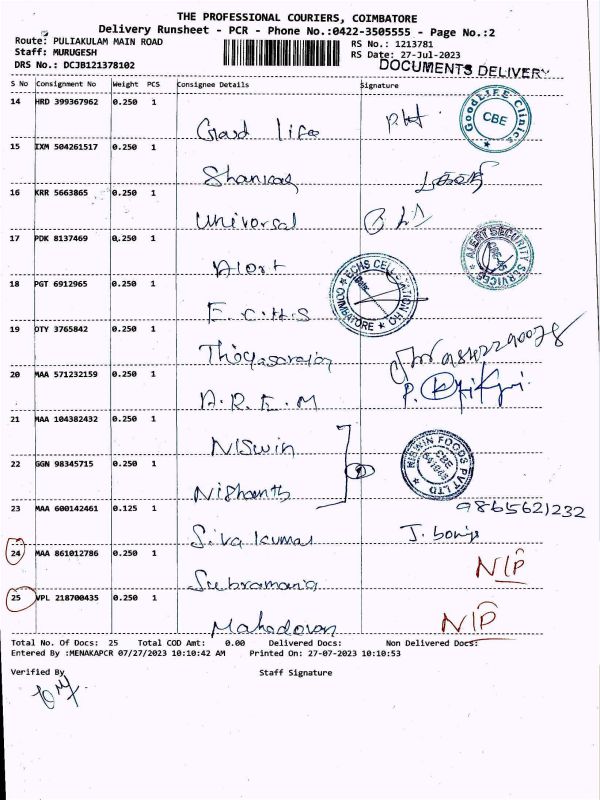 THE PROFESSIONAL COURIERS, COIMBATORE
Delivery Runsheet - PCR - Phone No.:0422-3505555 - Page No.:2
Route: PULIAKULAM MAIN ROAD RS No.: 1213781
Staff: MURUGESH RS Date: 27-Jul-2023
DRS No.: DCJB121378102 DOCUMENTS DELIVERY
S No Consignment No Weight PCS Consignee Details Signature
14 HRD 399367962 0.250 1
Good Life
GOODLIFE Clinics CBE
15 IXM 504261517 0.250 1
Shankar
16 KRR 5663865 0.250 1
Universal
17 PDK 8137469 0.250 1
Alert
ALERT SECURITY SERVICES
18 PGT 6912965 0.250 1
E.C.H.S
ECHS CELL STATION HQ COIMBATORE
19 OTY 3765842 0.250 1
Thiyagarajan
9842290078
20 MAA 571232159 0.250 1
A.R.E.M
21 MAA 104382432 0.250 1
NISwin
22 GGN 98345715 0.250 1
Nishanth
NISWIN FOODS PVT LTD CBE
23 MAA 600142461 0.125 1
9865621232
Siva kumar
24 MAA 861012786 0.250 1
Subramania N/P
25 VPL 218700435 0.250 1
Mahadevan N/P
Total No. Of Docs: 25 Total COD Amt: 0.00 Delivered Docs: Non Delivered Docs:
Entered By :MENAKAPCR 07/27/2023 10:10:42 AM Printed On: 27-07-2023 10:10:53
Verified By Staff Signature